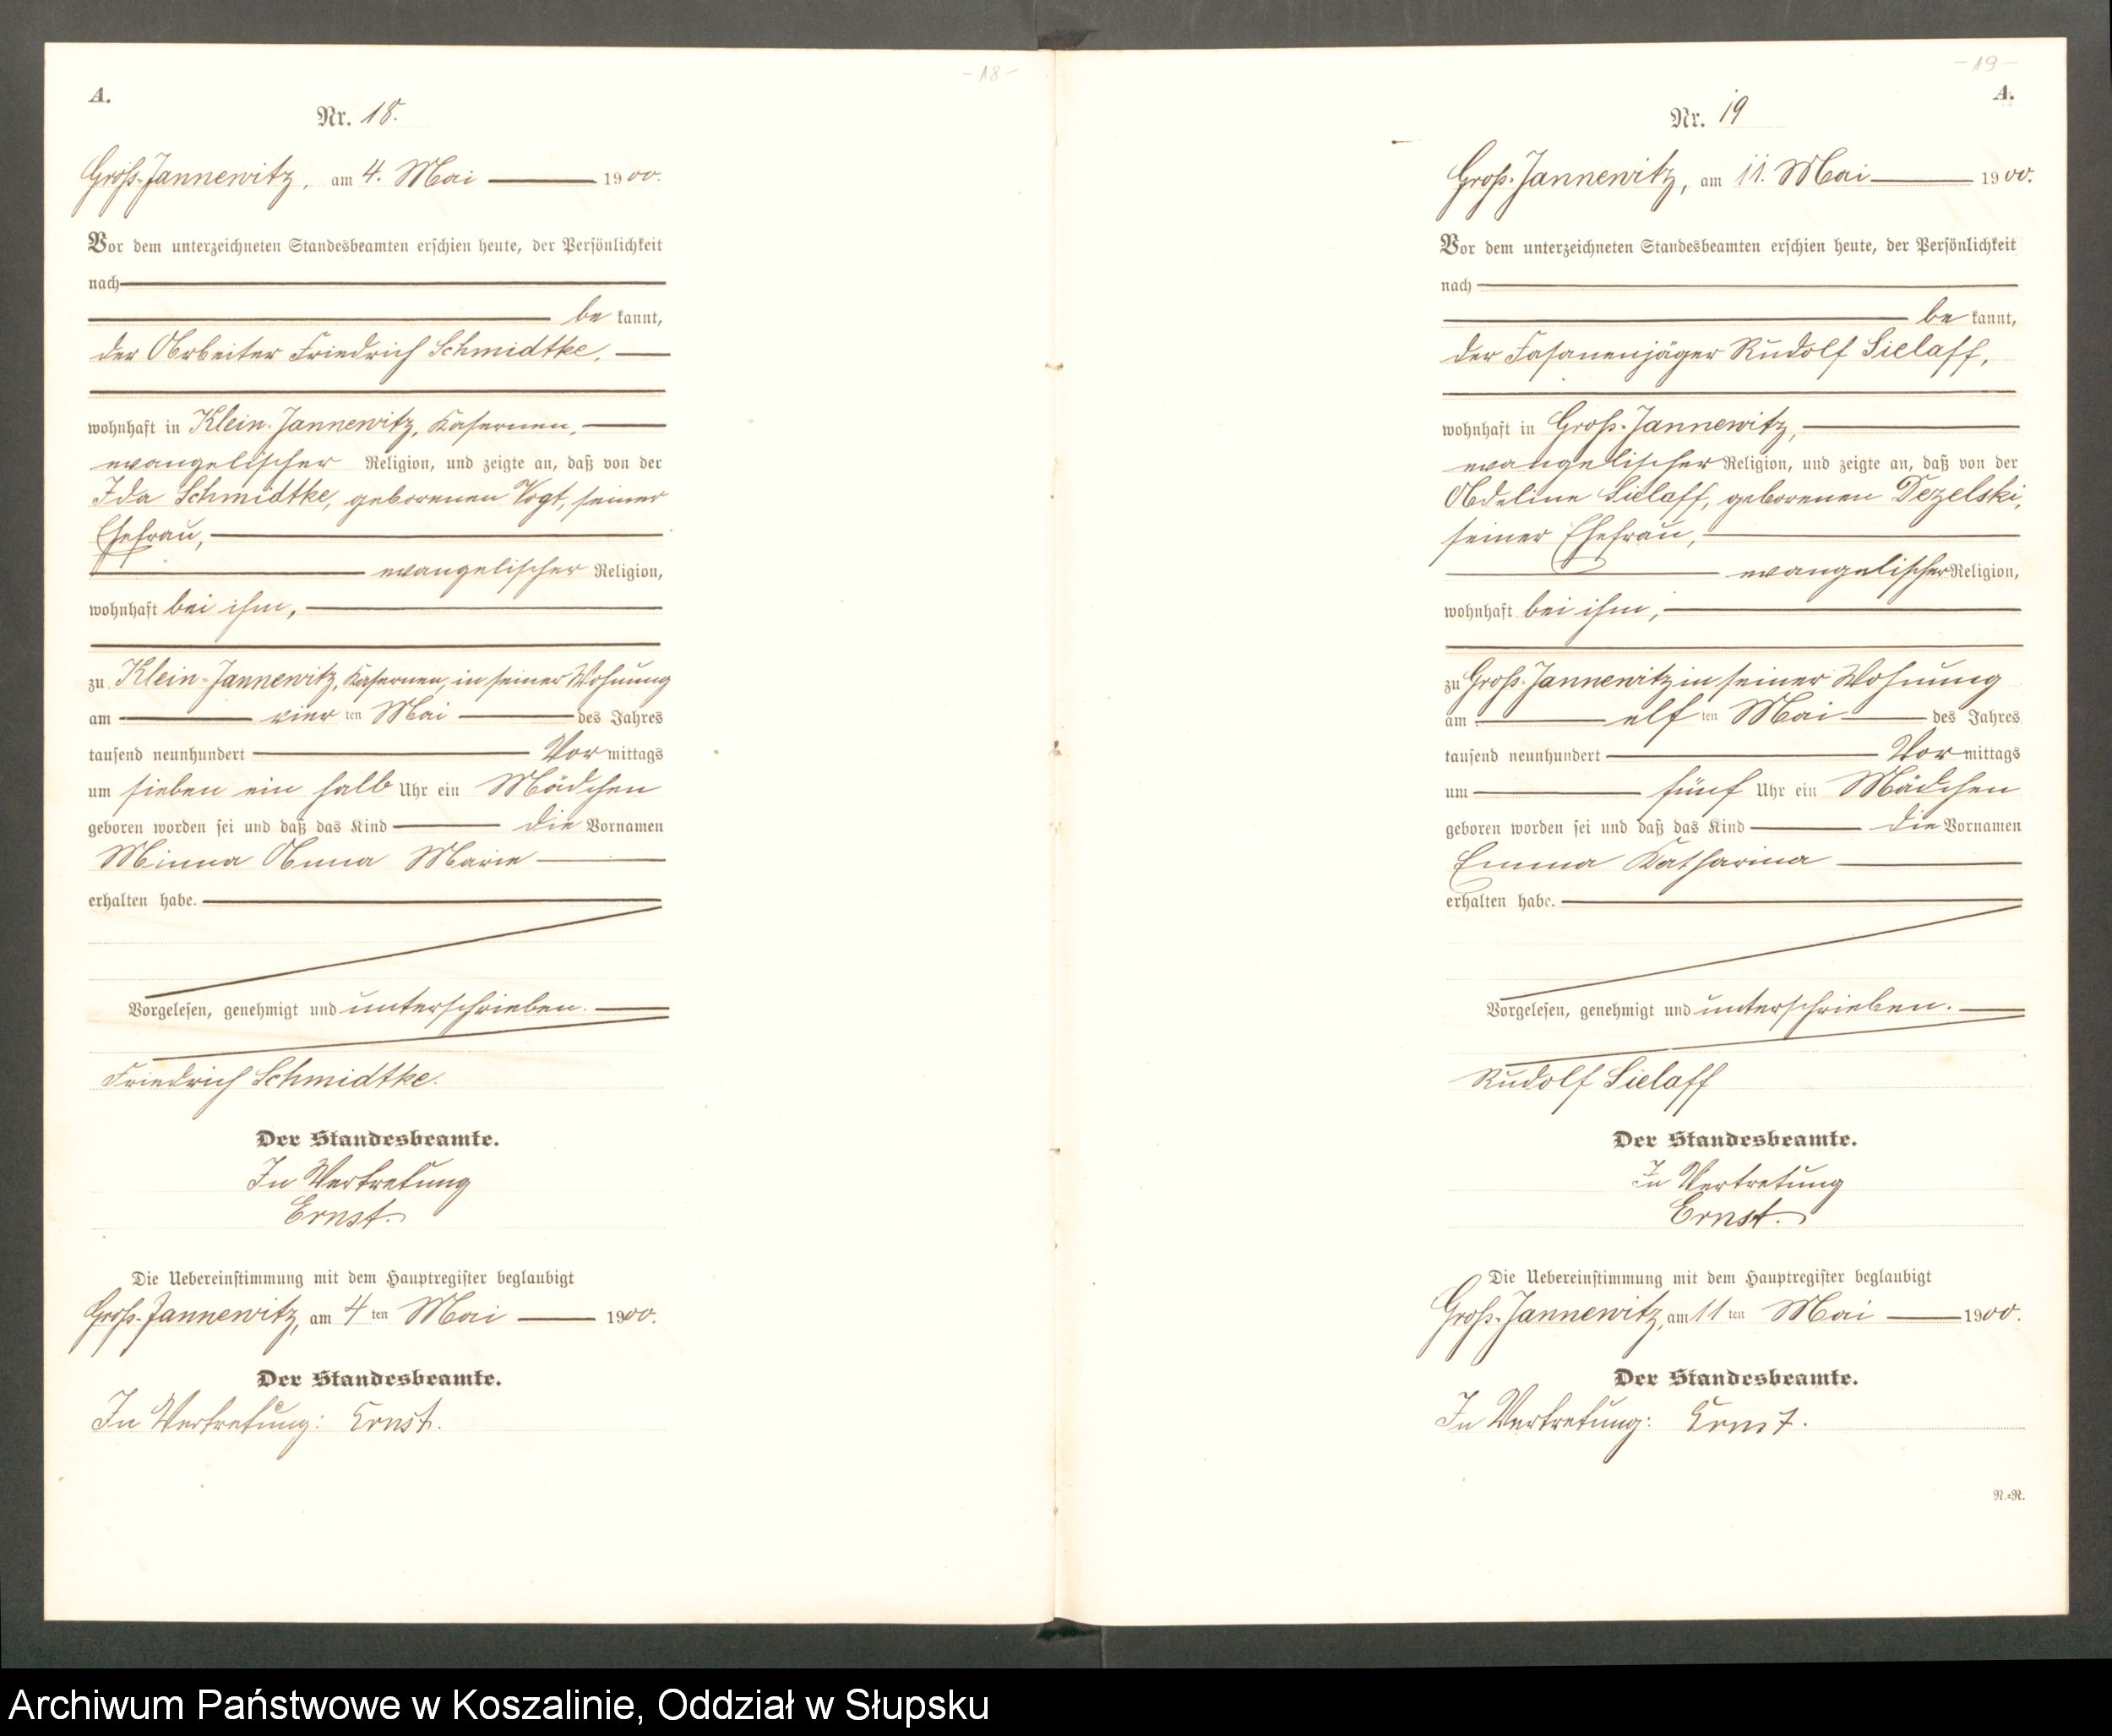 -18-
A.
Nr. 18.
Groß-Jannewitz, am 4. Mai 1900.
Vor dem unterzeichneten Standesbeamten erschien heute, der Persönlichkeit
nach
be kannt,
der Arbeiter Friedrich Schmidtke,
wohnhaft in Klein-Jannewitz, Kasernen,
evangelischer Religion, und zeigte an, daß von der
Ida Schmidtke, geborenen Vogt, seiner
Ehefrau,
evangelischer Religion,
wohnhaft bei ihm,
zu Klein-Jannewitz, Kasernen, in seiner Wohnung
am vier ten Mai des Jahres
tausend neunhundert Vor mittags
um sieben ein halb Uhr ein Mädchen
geboren worden sei und daß das Kind die Vornamen
Minna Anna Marie
erhalten habe.
Vorgelesen, genehmigt und unterschrieben.
Friedrich Schmidtke.
Der Standesbeamte.
In Vertretung
Ernst.
Die Uebereinstimmung mit dem Hauptregister beglaubigt
Groß-Jannewitz, am 4 ten Mai 1900.
Der Standesbeamte.
In Vertretung: Ernst.
-19-
A.
Nr. 19
Groß-Jannewitz, am 11. Mai 1900.
Vor dem unterzeichneten Standesbeamten erschien heute, der Persönlichkeit
nach
be kannt,
der Fasanenjäger Rudolf Sielaff,
wohnhaft in Groß-Jannewitz,
evangelischer Religion, und zeigte an, daß von der
Adeline Sielaff, geborenen Dezelski,
seiner Ehefrau,
evangelischer Religion,
wohnhaft bei ihm,
zu Groß-Jannewitz in seiner Wohnung
am elf ten Mai des Jahres
tausend neunhundert Vor mittags
um fünf Uhr ein Mädchen
geboren worden sei und daß das Kind die Vornamen
Emma Katharina
erhalten habe.
Vorgelesen, genehmigt und unterschrieben.
Rudolf Sielaff
Der Standesbeamte.
In Vertretung
Ernst.
Die Uebereinstimmung mit dem Hauptregister beglaubigt
Groß-Jannewitz, am 11 ten Mai 1900.
Der Standesbeamte.
In Vertretung: Ernst.
N.=N.
Archiwum Państwowe w Koszalinie, Oddział w Słupsku